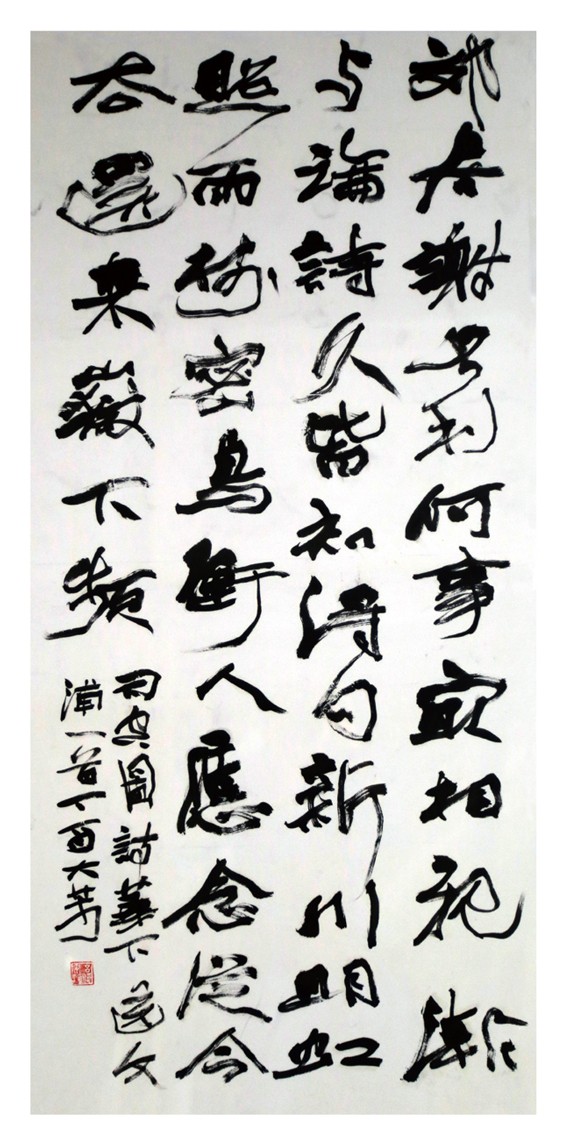 郊居謝名利何事冣相親漸
与論詩久皆知得句新川明虹
照雨樹密鳥衝人應念從今
去還来嶽下頻
司空圖詩華下送文
浦一首丁酉大